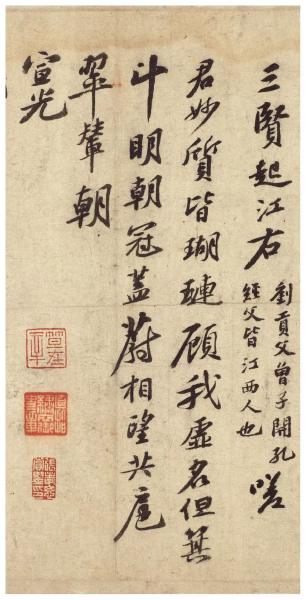 三賢起江右劉貢父曾子開孔經父皆江西人也嗟
君妙質皆瑚璉顧我虛名但箕
斗明朝冠蓋蔚相望共扈
翠輦朝
宣光